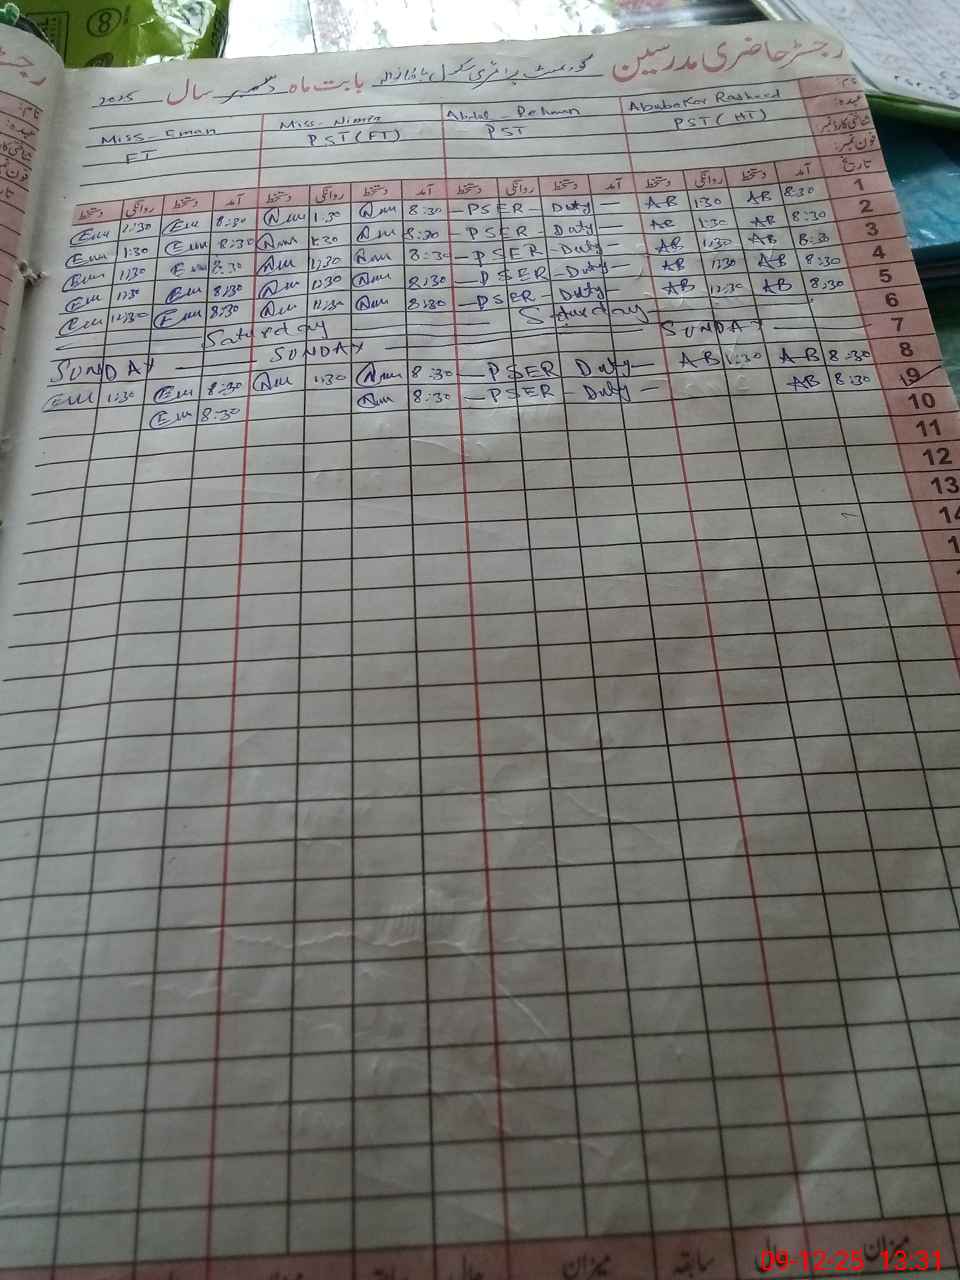 رجسٹر حاضری مدرسین گورنمنٹ پرائمری سکول بابت ماہ دسمبر سال 2025
نام: Ababakar Rasheed Abdul - Rehman Miss - Nimra Miss - Eman
عہدہ: PST ( HT ) PST PST ( FT ) FT
شناختی کارڈ نمبر
فون نمبر:
تاریخ آمد دستخط روانگی دستخط آمد دستخط روانگی دستخط آمد دستخط روانگی دستخط آمد دستخط روانگی دستخط
1 8:30 AB 1:30 AB — PSER - Duty — 8:30 Nim 1:30 Nim 8:30 Em 1:30 Em
2 8:30 AB 1:30 AB — PSER - Duty — 8:30 Nim 1:30 Nim 8:30 Em 1:30 Em
3 8:30 AB 1:30 AB — PSER - Duty — 8:30 Nim 1:30 Nim 8:30 Em 1:30 Em
4 8:30 AB 1:30 AB — PSER - Duty — 8:30 Nim 1:30 Nim 8:30 Em 1:30 Em
5 8:30 AB 12:30 AB — PSER - Duty — 8:30 Nim 12:30 Nim 8:30 Em 12:30 Em
6 Saturday Saturday
7 SUNDAY SUNDAY SUNDAY
8 8:30 A-B 1:30 A-B — PSER Duty — 8:30 Nim 1:30 Nim 8:30 Em 1:30 Em
9 8:30 AB — PSER - Duty — 8:30 Nim 8:30 Em
10
11
12
13
میزان سابقہ میزان
09-12-25 13:31